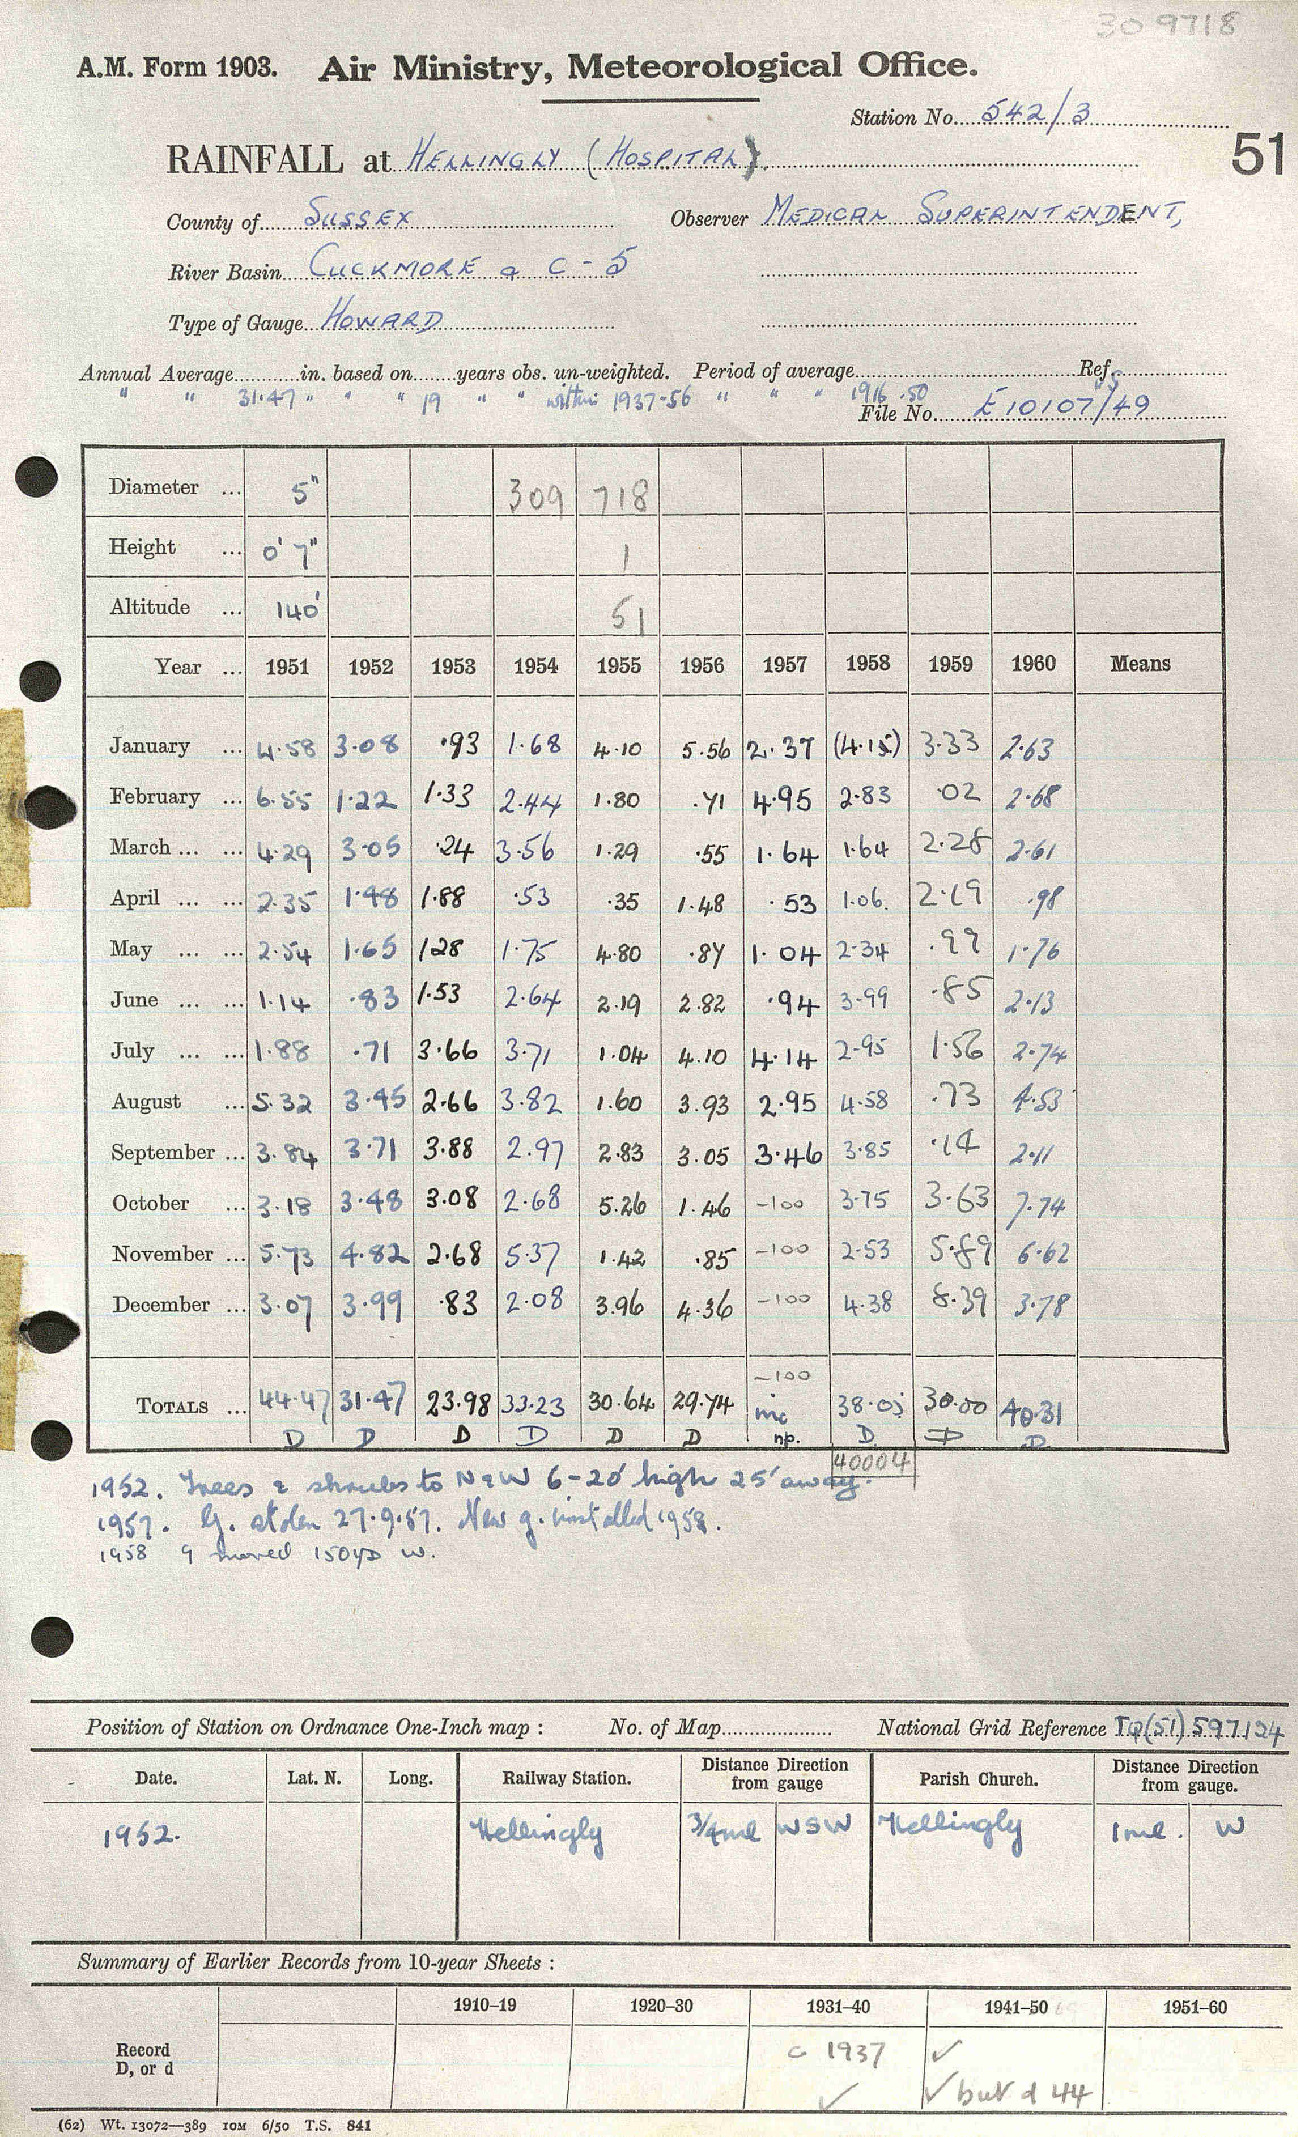 30 9718
A.M. Form 1903. Air Ministry, Meteorological Office.
Station No. 542/3
51
RAINFALL at HELLINGLY (HOSPITAL).
County of SUSSEX Observer MEDICAL SUPERINTENDENT,
River Basin CUCKMORE a C-5
Type of Gauge HOWARD
Annual Average in. based on years obs. un-weighted. Period of average Refs
" " 31.47 " " " 19 " " within 1937-56 " " " 1916-50
File No. E10107/49
Diameter ... 5" 309 718
Height ... 0' 7" 1
Altitude ... 140' 51
Year ... 1951 1952 1953 1954 1955 1956 1957 1958 1959 1960 Means
January ... 4.58 3.08 .93 1.68 4.10 5.56 2.37 (4.15) 3.33 2.63
February ... 6.55 1.22 1.33 2.44 1.80 .71 4.95 2.83 .02 2.68
March ... ... 4.29 3.05 .24 3.56 1.29 .55 1.64 1.64 2.28 2.61
April ... ... 2.35 1.48 1.88 .53 .35 1.48 .53 1.06. 2.19 .98
May ... ... 2.54 1.65 128 1.75 4.80 .87 1.04 2.34 .99 1.76
June ... ... 1.14 .83 1.53 2.64 2.19 2.82 .94 3.99 .85 2.13
July ... ... 1.88 .71 3.66 3.71 1.04 4.10 4.14 2.95 1.56 2.74
August ... 5.32 3.45 2.66 3.82 1.60 3.93 2.95 4.58 .73 4.53
September ... 3.84 3.71 3.88 2.97 2.83 3.05 3.46 3.85 .14 2.11
October ... 3.18 3.48 3.08 2.68 5.26 1.46 -100 3.75 3.63 7.74
November ... 5.73 4.82 2.68 5.37 1.42 .85 -100 2.53 5.89 6.62
December ... 3.07 3.99 .83 2.08 3.96 4.36 -100 4.38 8.39 3.78
-100
TOTALS ... 44.47 31.47 23.98 33.23 30.64 29.74 inc 38.05 30.00 40.31
D D D D D D np. D. D D
40004
1952. Trees & shrubs to N & W 6-20' high 25' away.
1957. G. stolen 27.9.57. New g. installed 1958.
1958 g moved 150yds W.
Position of Station on Ordnance One-Inch map : No. of Map National Grid Reference TQ(51)597124
Date. Lat. N. Long. Railway Station. Distance from gauge Direction Parish Church. Distance from gauge. Direction
1952. Hellingly 3/4ml WSW Hellingly 1ml. W
Summary of Earlier Records from 10-year Sheets :
1910-19 1920-30 1931-40 1941-50 1951-60
Record D, or d c 1937 ✓ ✓
✓ but d 44
(62) Wt. 13072—389 10M 6/50 T.S. 841